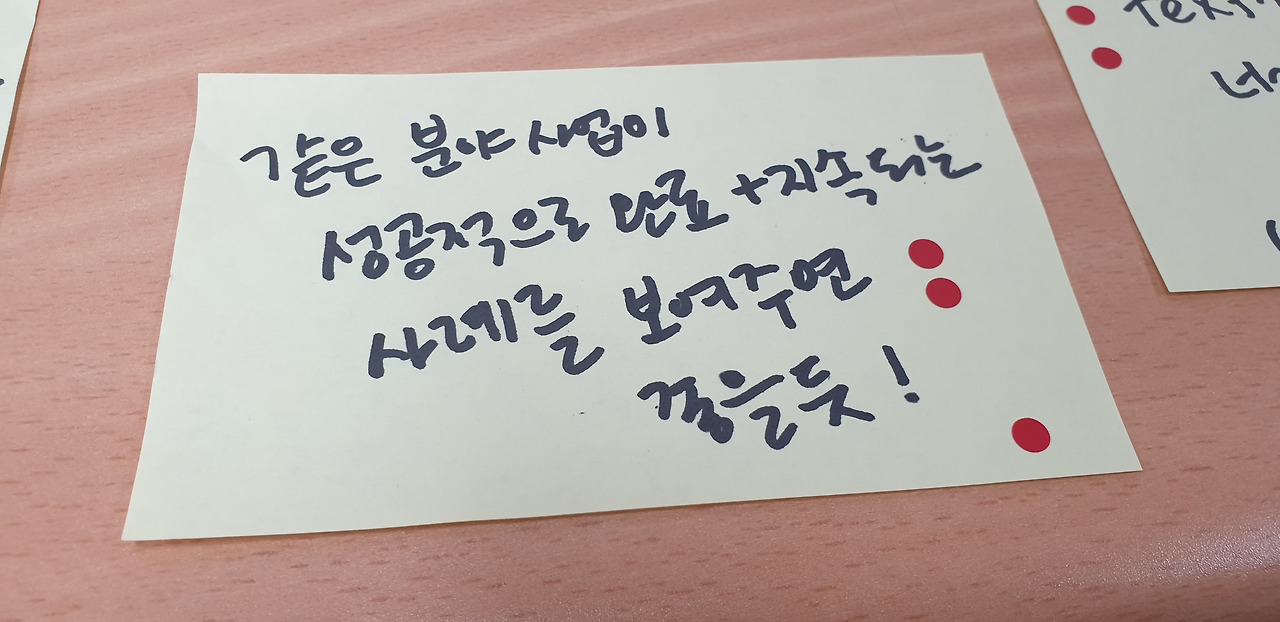 같은 분야 사업이
성공적으로 완료 + 지속되는
사례를 보여주면
좋을듯!
Text
너